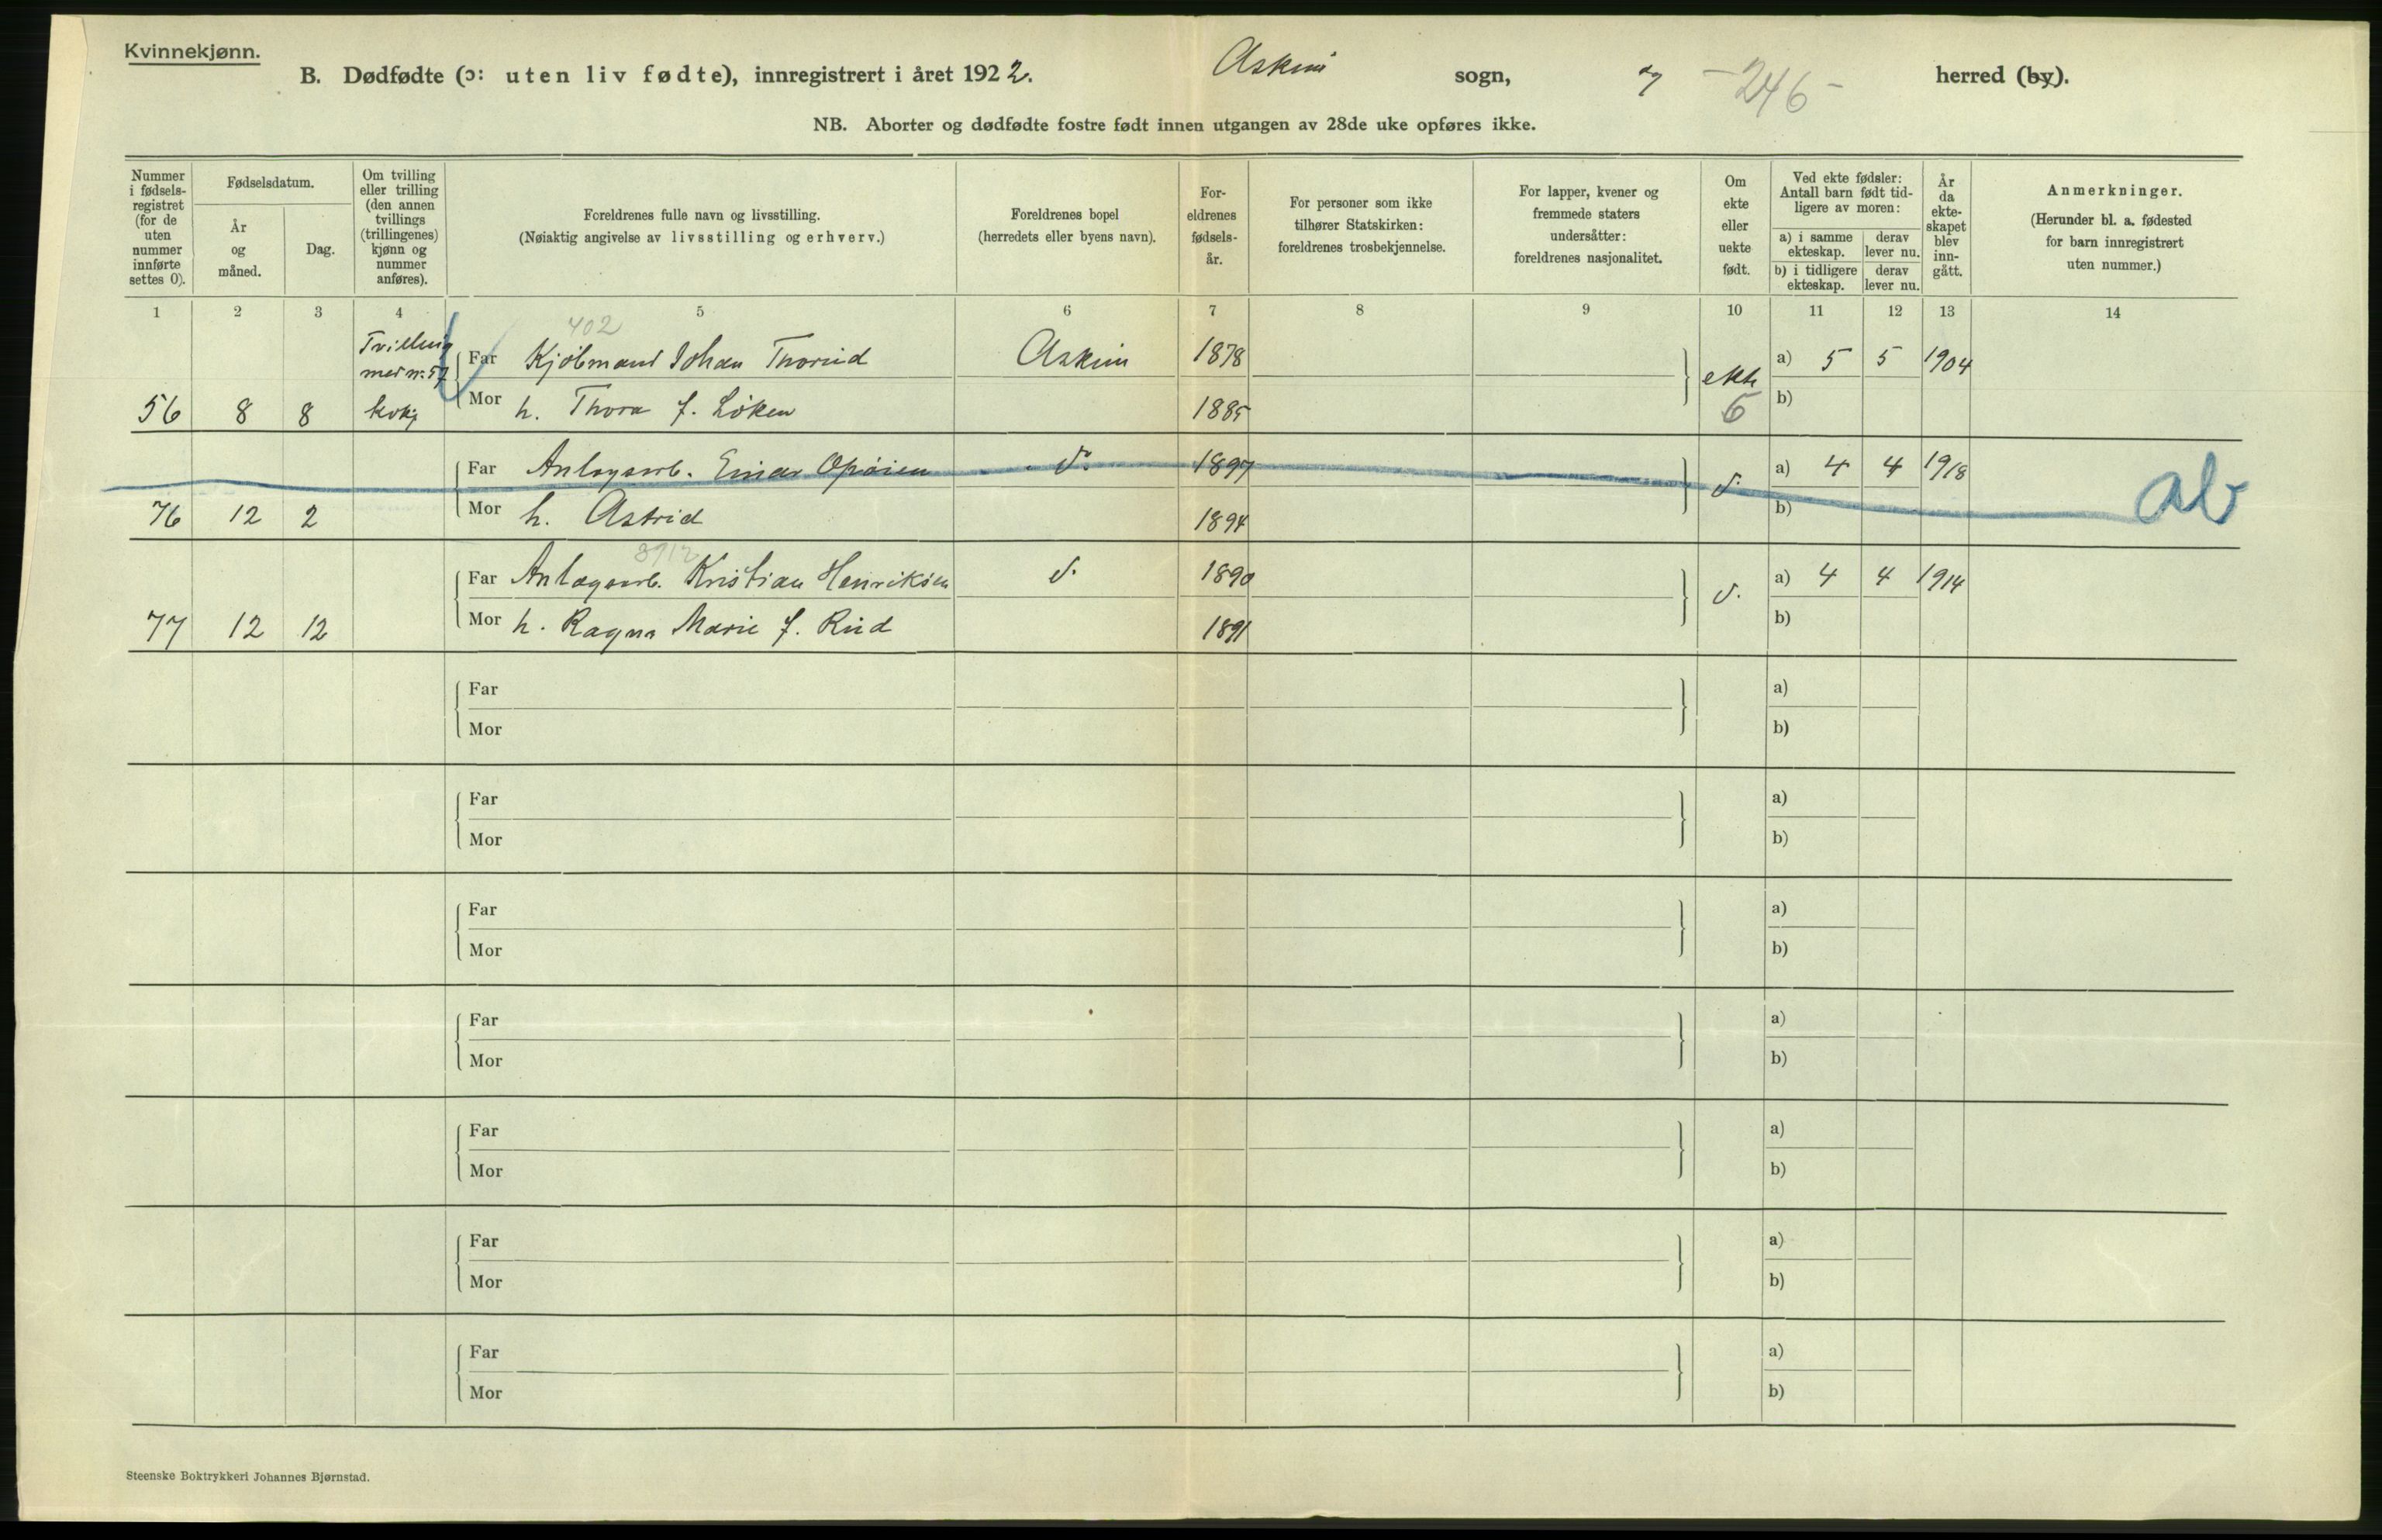 Kvinnekjønn.
B. Dødfødte (ɔ: uten liv fødte), innregistrert i året 1922. Askim sogn, og -246- herred (by).
NB. Aborter og dødfødte fostre født innen utgangen av 28de uke opføres ikke.
Nummer i fødsels-registret (for de uten nummer innførte settes 0).
Fødselsdatum.
År og måned.
Dag.
Om tvilling eller trilling (den annen tvillings (trillingenes) kjønn og nummer anføres).
Foreldrenes fulle navn og livsstilling.
(Nøiaktig angivelse av livsstilling og erhverv.)
Foreldrenes bopel (herredets eller byens navn).
For-eldrenes fødsels-år.
For personer som ikke tilhører Statskirken: foreldrenes trosbekjennelse.
For lapper, kvener og fremmede staters undersåtter: foreldrenes nasjonalitet.
Om ekte eller uekte født.
Ved ekte fødsler: Antall barn født tid-ligere av moren:
a) i samme ekteskap. derav lever nu.
b) i tidligere ekteskap. derav lever nu.
År da ekte-skapet blev inn-gått.
Anmerkninger.
(Herunder bl. a. fødested for barn innregistrert uten nummer.)
1 2 3 4 5 6 7 8 9 10 11 12 13 14
402
Tvilling med nr. 57 Far Kjøbmand Johan Thorud Askim 1878 ekte a) 5 5 1904
56 8 8 kvkj Mor h. Thora f. Löken 1885 6 b)
Far Anlagsarb. Einar Opøien d. 1897 d. a) 4 4 1918
76 12 2 Mor h. Astrid 1894 b) ab
3712
Far Anlagsarb. Kristian Henriksen d. 1890 d. a) 4 4 1914
77 12 12 Mor h. Ragna Marie f. Rud 1891 b)
Far a)
Mor b)
Far a)
Mor b)
Far a)
Mor b)
Far a)
Mor b)
Far a)
Mor b)
Far a)
Mor b)
Far a)
Mor b)
Steenske Boktrykkeri Johannes Bjørnstad.